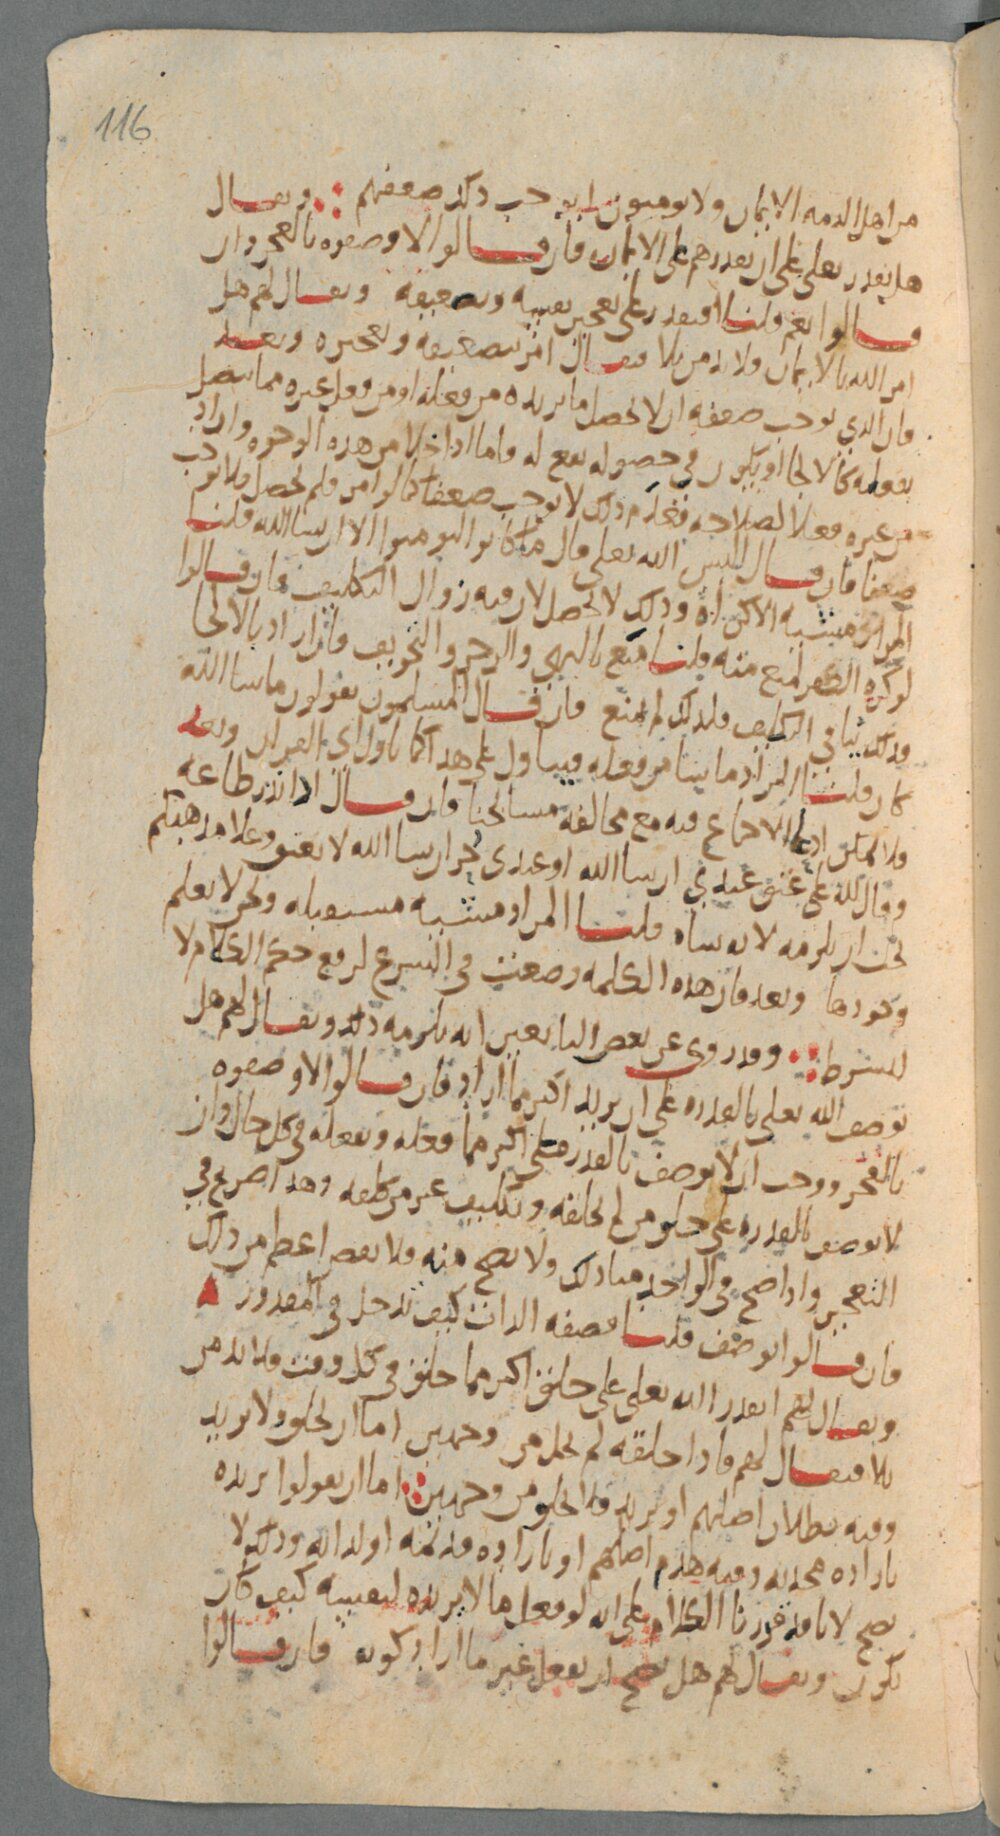 116
من اهل الذمه الايمان ولا يومنون ايوجب ذلك ضعفهم ويقال
هل يقدر تعلى على ان يقدرهم على الايمان فان قالوا لا وصفوه بالعجز وان
قالوا نعم قلنا افيقدر على تعجيز نفسه وتضعيفه ويقال لهم هل
امر الله بالايمان ولا بد من بلا فيقال امر بتضعيفه وتعجيزه وبعد
فان الذي يوجب ضعفه ان لا يحصل ما يريده من فعله او من فعل غيره مما يتصل
بفعله كالالجا او يكون في حصوله نفع له فاما اذا خلا من هذه الوجوه واراد
من غيره فعلا لصلاحه فغلام ذلك لا يوجب ضعفا كما لو امر فلم يحصل فلا يوجب
ضعفا فان قال اليس الله تعلى قال ما كانوا ليومنوا الا ان يشا الله قلنا
المراد مشيه الاكراه وذلك لا يحصل لان فيه زوال التكليف فان قالوا
لو كره الكفر لمنع منه قلنا منع بالنهي والزجر والتخويف فان اراد بالالجا
فذلك ينافي التكليف فلذلك لم يمنع فان قال المسلمون يقولون ما شا الله
كان قلنا المراد ما يشا من فعله فيتاول على هذا كما تاول اي القران وبعد
فلا يمكن ادعا الاجماع فيه مع مخالفه مشايخنا فان قال اذا نذر طاعه
وقال لله علي عتق عبدي ان شا الله او عبدي حر ان شا الله لا يعتق وعلا مذهبكم
يجب ان يلزمه لانه شاه قلنا المراد مشيه مستقبله ونحن لا نعلم
وجودها وبعد فان هذه الكلمه وضعت في الشرع لرفع حكم الكلام لا
للشرط وقد روي عن بعض التابعين انه يلزمه ذلك ويقال لهم هل
يوصف الله تعلى بالقدره على ان يريد اكثر مما اراد فان قالوا لا وصفوه
بالعجز ووجب ان لا يوصف بالقدره على اكثر مما فعله ويفعله في كل حال وان
لا يوصف بالقدره على خلق من لم يخلقه وتكليف غير من كلفه وهذا صريح في
التعجيز واذا صح في الواحد منا ذلك ولا يصح منه فلا نقص اعظم من ذلك
فان قالوا يوصف قلنا فصفه الذات كيف تدخل في المقدور
ويقال لهم ايقدر الله تعلى على خلق اكثر مما خلق في كل وقت فلا بد من
بلا فيقال لهم فاذا خلقه لم يخل من وجهين اما ان يخلق ولا يريد
وفيه بطلان اصلهم او يريد فلا يخلو من وجهين اما ان يقولوا يريده
باراده محدثه وفيه هدم اصلهم او باراده قديمه او لذاته وذلك لا
يصح لانا قد قررنا الكلام على انه لو فعل ما لا يريده لنفسه كيف كان
يكون ويقال لهم هل يصح ان يفعل غير ما اراد كونه فان قالوا